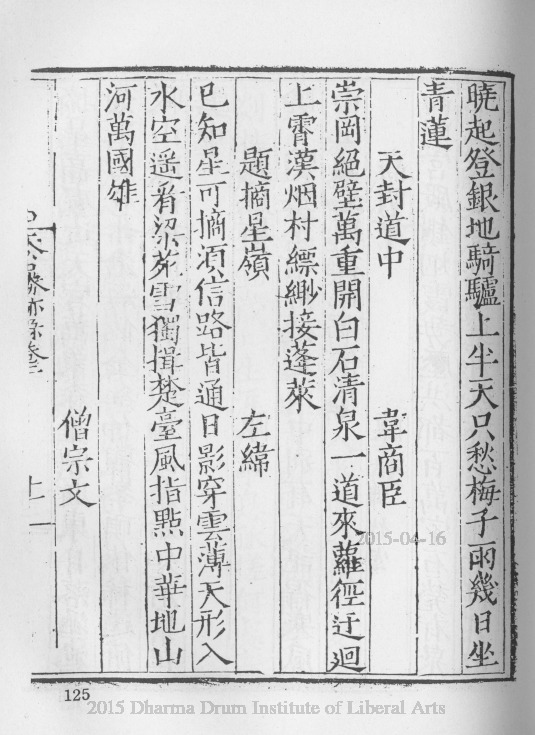 曉起登銀地騎驢上半天只愁梅子雨幾日坐
青蓮
天封道中 韋商臣
崇岡絕壁萬重開白石清泉一道來蘿徑迂迴
上霄漢烟村縹緲接蓬萊
題摘星嶺 左緯
已知星可摘須信路皆通日影穿雲薄天形入
水空遥看梁苑雪獨揖楚臺風指點中華地山
河萬國雄
僧宗文
十一
125
2015-04-16
2015 Dharma Drum Institute of Liberal Arts